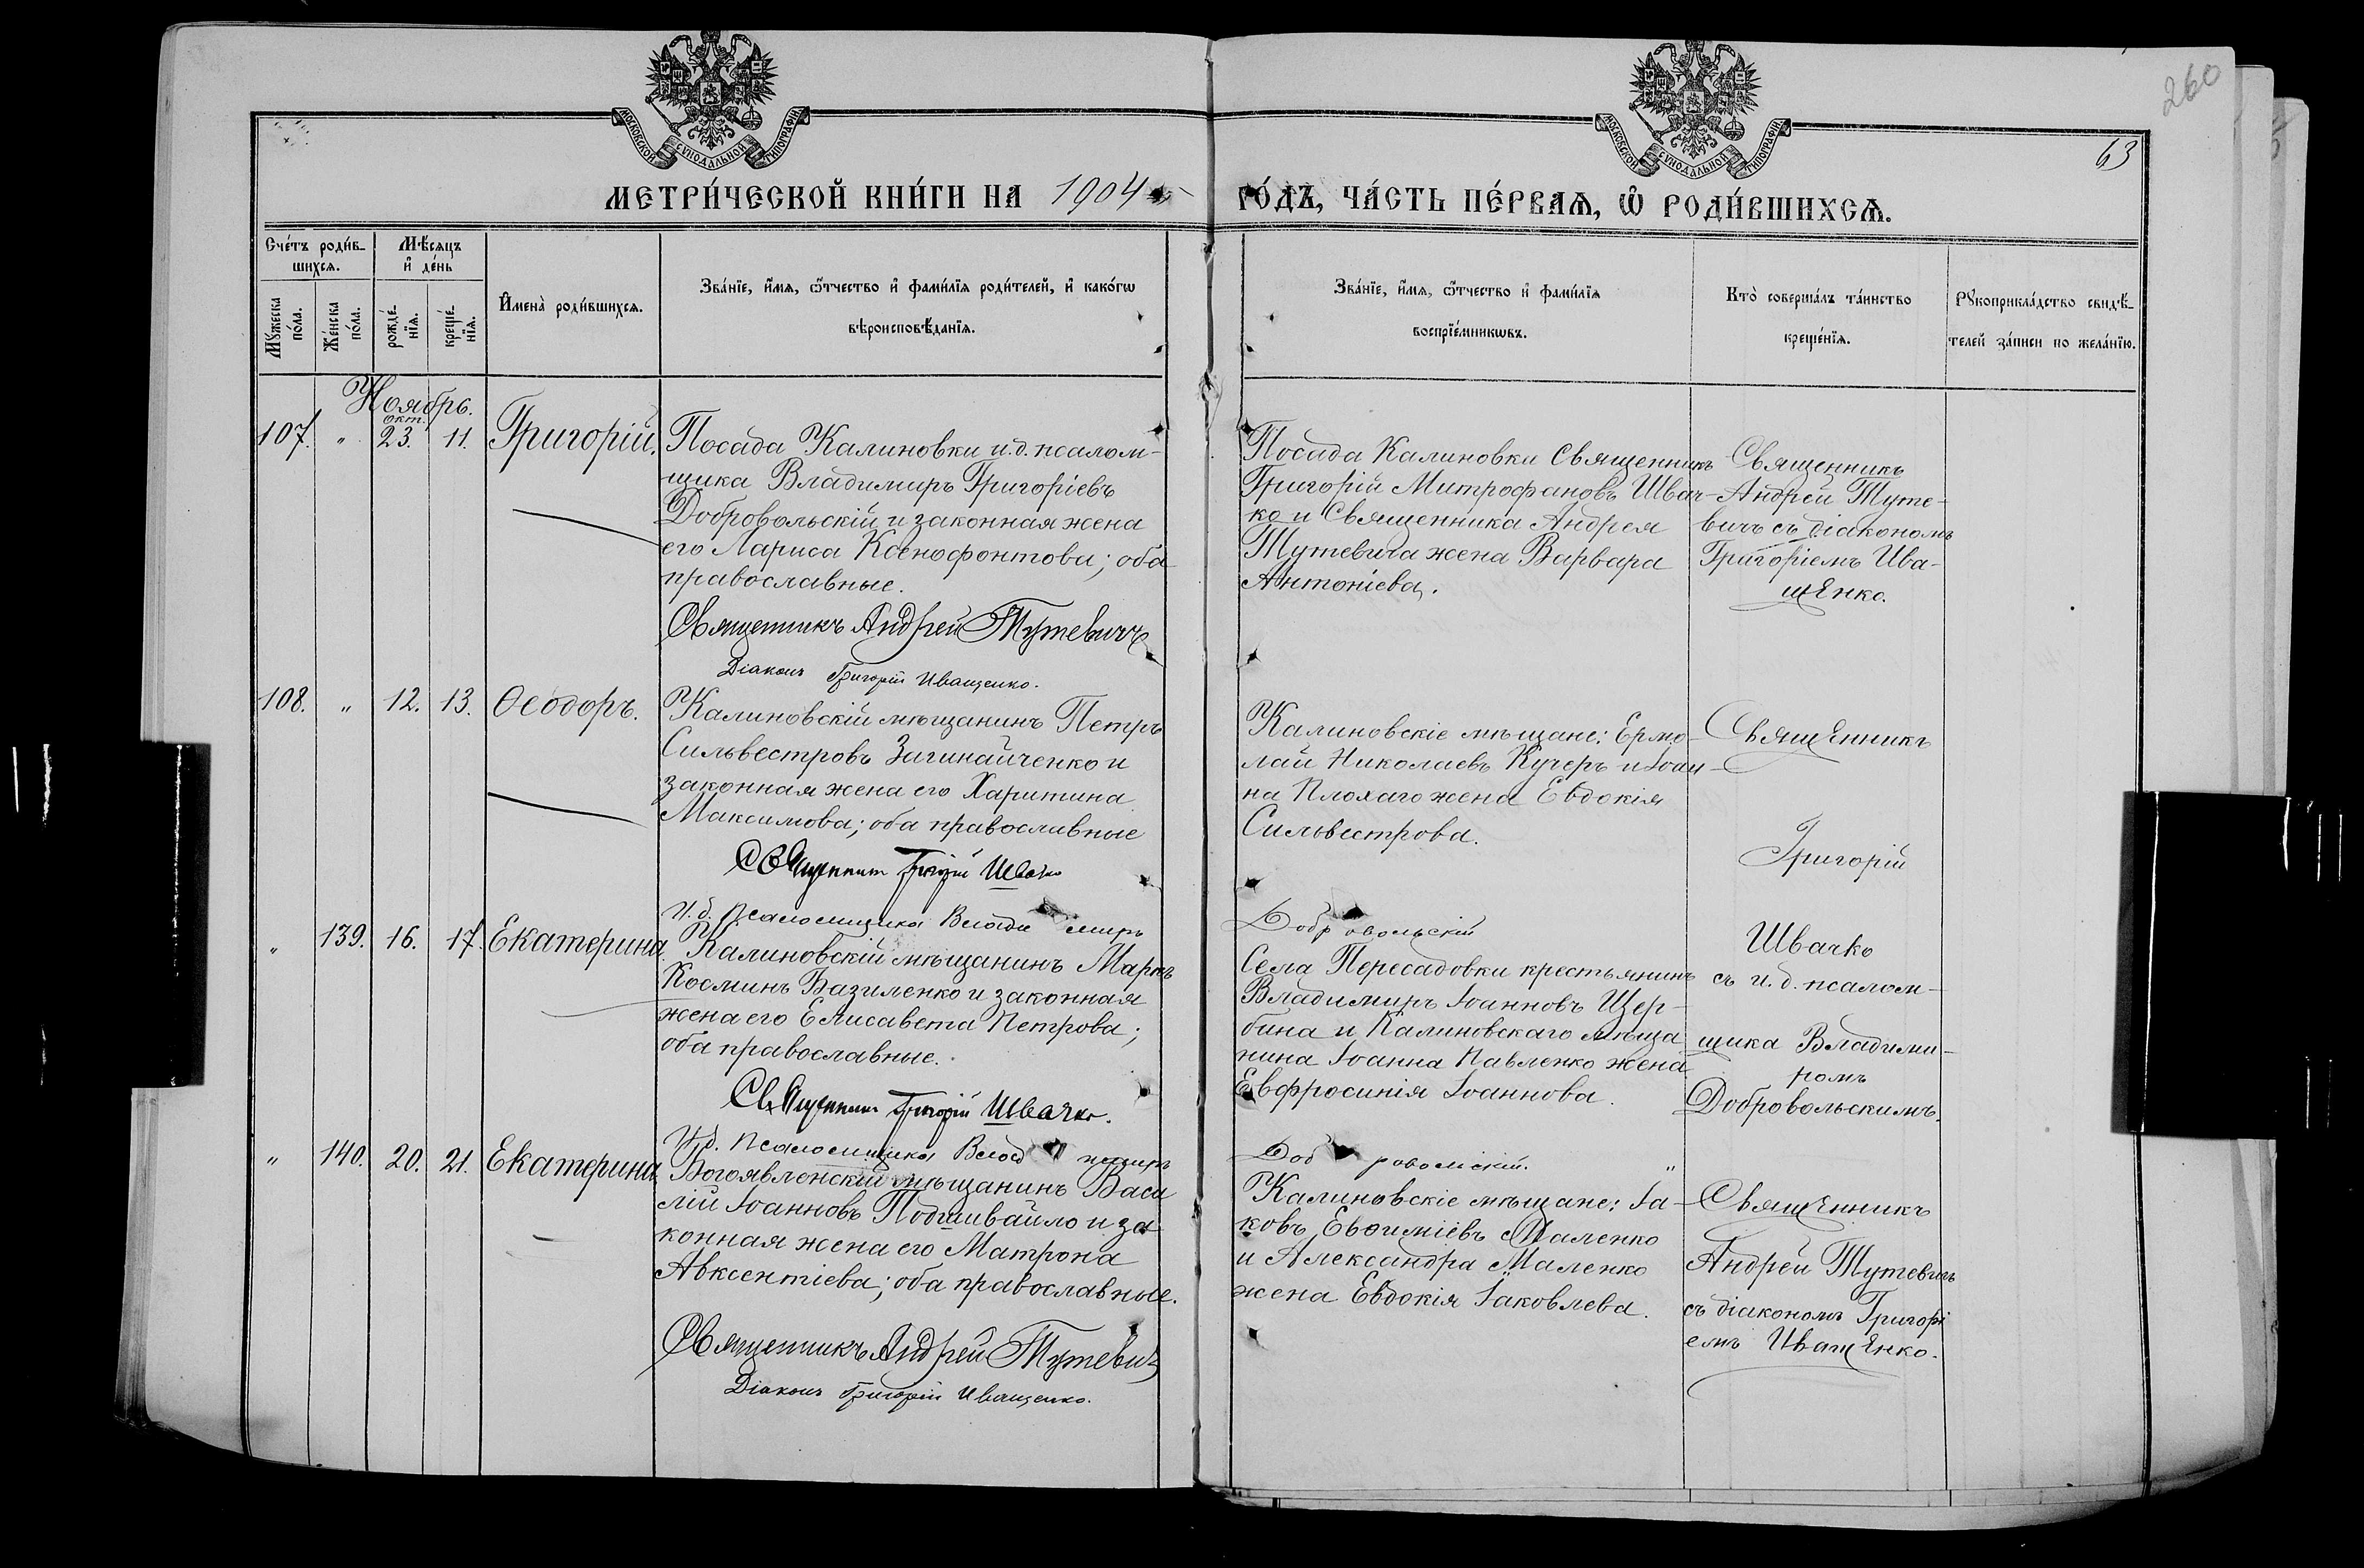 260
63
МОСКОВСКОЙ СѴНОДАЛЬНОЙ ТИПОГРАФІИ
МОСКОВСКОЙ СѴНОДАЛЬНОЙ ТИПОГРАФІИ
МЕТРИ́ЧЕСКОЙ КНИ́ГИ НА 1904 ГО́ДЪ, ЧА́СТЬ ПЕ́РВАѦ, Ѽ РОДИ́ВШИХСѦ.
Сче́тъ роди́в-
шихсѧ.
Мѣ́сѧцъ
и҆ де́нь
Мꙋ́жеска
по́ла.
Же́нска
по́ла.
рожде́-
нїѧ.
креще́-
нїѧ.
И҆мена̀ роди́вшихсѧ.
Зва́нїе, и҆́мѧ, ѻ҆́тчество и҆ фами́лїѧ роди́телей, и҆ како́гѡ
вѣроисповѣ́данїѧ.
Зва́нїе, и҆́мѧ, ѻ҆́тчество и҆ фами́лїѧ
воспрїе́мникѡвъ.
Кто̀ соверша́лъ та́инство
креще́нїѧ.
Рꙋкоприкла́дство свидѣ́-
телей за́писи по жела́нїю.
Ноябрь.
окт.
107. " 23. 11. Григорій.
Посада Калиновки и.д. псалом-
щика Владимиръ Григоріевъ
Добровольскій и законная жена
его Лариса Ксенофонтова; оба
православные.
Священникъ Андрей Тутевичъ
Діаконъ Григорій Иващенко.
Посада Калиновки Священникъ
Григорій Митрофановъ Швач-
ко и Священника Андрея
Тутевича жена Варвара
Антоніева.
Священникъ
Андрей Туте-
вичъ съ діакономъ
Григоріемъ Ива-
щенко.
108. " 12. 13. Ѳеодоръ.
Калиновскій мѣщанинъ Петръ
Сильвестровъ Загинайченко и
законная жена его Харитина
Максимова; оба православные
Священникъ Григорій Швачко
И. д. Псаломщика Владимиръ Добровольскій
Калиновскіе мѣщане: Ермо-
лай Николаевъ Кучеръ и Іоан-
на Плохаго жена Евдокія
Сильвестрова.
Священникъ
Григорій
Швачко
съ и. д. псалом-
щика Владими-
ромъ
Добровольскимъ.
" 139. 16. 17. Екатерина
Калиновскій мѣщанинъ Маркъ
Косминъ Базиленко и законная
жена его Елисавета Петрова;
оба православные.
Священникъ Григорій Швачко.
И. д. Псаломщика Владимиръ Добровольскій.
Села Пересадовки крестьянинъ
Владимиръ Іоанновъ Щер-
бина и Калиновскаго мѣща
нина Іоанна Павленко жена
Евфросинія Іоаннова.
" 140. 20. 21. Екатерина
Богоявленскій мѣщанинъ Васи
лій Іоанновъ Подшивайло и за
конная жена его Матрона
Авксентіева; оба православные.
Священникъ Андрей Тутевичъ
Діаконъ Григорій Иващенко.
Калиновскіе мѣщане: Іа-
ковъ Евѳиміевъ Маленко
и Александра Маленко
жена Евдокія Іаковлева.
Священникъ
Андрей Тутевичъ
съ діакономъ Григорі
емъ Иващенко.